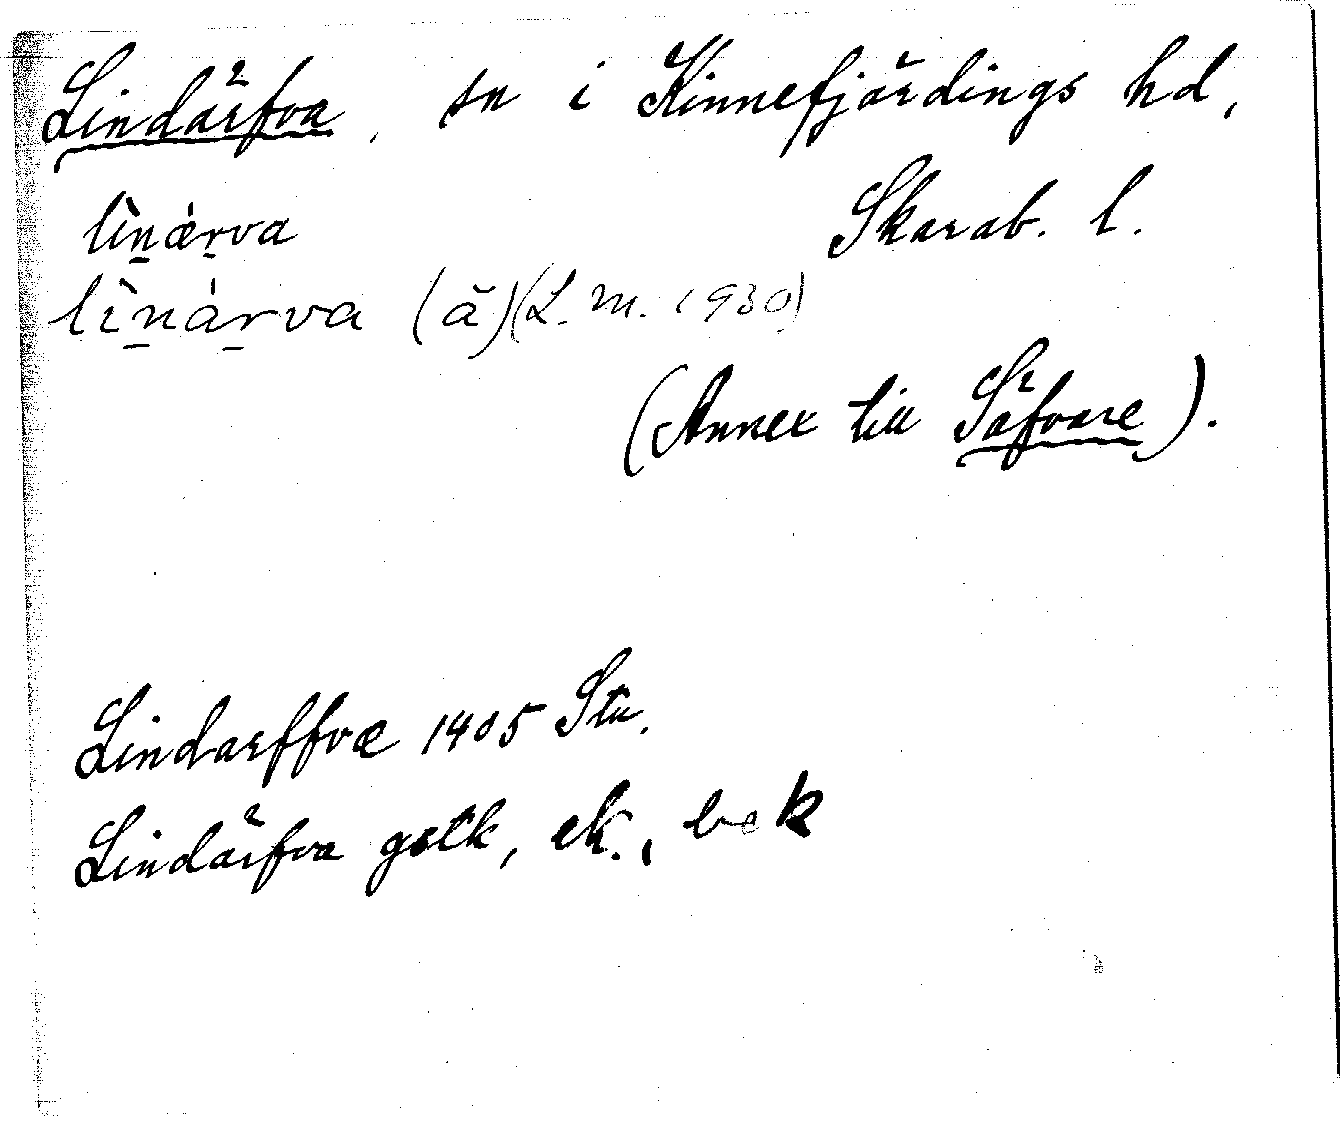 Lindärfva, sn i Kinnefjärdings hd,
Skarab. l.
lìn̲ǽr̲va
lìn̲ár̲va (ă) (L. m. 1930)
(Annex till Säfvare).
Lindarffvæ 1405 Stu.
Lindärfva gstk, ek., bek